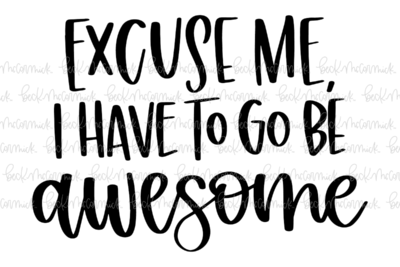 EXCUSE ME,
I HAVE TO GO BE
awesome